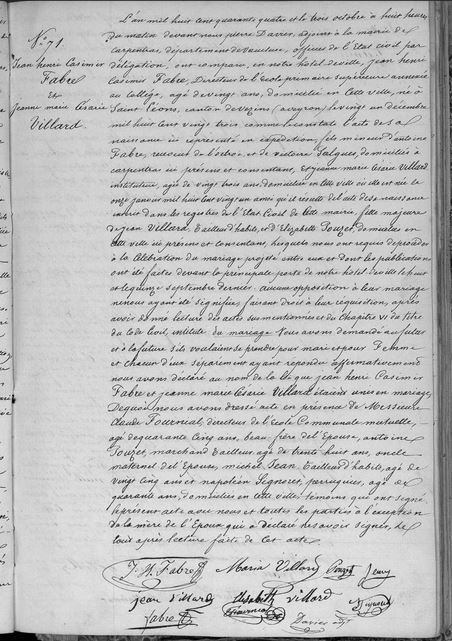 N°. 71
Jean henri Casimir
Fabre
et
Jeanne marie Césarie
Villard.
L'an mil huit cent quarante quatre et le trois octobre à huit heures
du matin devant nous pierre Davier, adjoint à la mairie de
Carpentras, département de vaucluse, officier de l'Etat civil par
délégation, ont comparu, en notre hôtel de ville, jean henri
Casimir Fabre, Directeur de l'école primaire supérieure annexée
au collège, agé de vingt ans, domicilié en cette ville, né à
Saint Léons, canton de vezins (aveyron) le vingt un décembre
mil huit cent vingt trois comme le constate l'acte de sa
naissance ici représenté en expédition, fils mineur d'antoine
Fabre, et de victoire Salgues, domiciliés à
carpentras ici présens et consentans, Et jeanne marie Césarie Villard,
institutrice, agée de vingt trois ans, domiciliée en cette ville où elle est née le
onze janvier mil huit cent vingt un ainsi qu'il résulte de l'acte de sa naissance
inscrit dans les registres de l'Etat Civil de cette mairie, fille majeure
de jean Villard, Tailleur d'habits, et d'Elizabeth Pouzet, domiciliés en
cette ville ici présens et consentans, lesquels nous ont requis de procéder
à la célébration du mariage projeté entre eux et dont les publications
ont été faites devant la principale porte de notre hôtel de ville le huit
et le quinze septembre dernier. aucune opposition à leur mariage
ne nous ayant été signifiée, faisant droit à leur réquisition, après
avoir donné lecture des actes sus mentionnés et du Chapitre VI du titre
du Code Civil, intitulé du mariage nous avons demandé au futur
et à la future s'ils voulaient se prendre pour mari et pour Femme
et chacun d'eux séparément ayant répondu affirmativement
nous avons déclaré au nom de la loi que jean henri Casimir
Fabre et jeanne marie Césarie Villard étaient unis en mariage,
De quoi nous avons dressé acte en présence de Messieurs
Claude Fournial, directeur de l'école Communale mutuelle,
agé de quarante cinq ans, beau frère de l'Epouse, antoine
Pouzet, marchand Tailleur agé de trente huit ans, oncle
maternel de l'Epouse, michel Jean, Tailleur d'habits, agé de
vingt cinq ans et napoléon Signoret, perruquier, agé de
quarante ans, domiciliés en cette ville témoins qui ont signé
le présent acte avec nous et toutes les parties à l'exception
de la mère de l'Epoux qui a déclaré ne savoir signer, le
tout après lecture faite de cet acte.
J. H. Fabre Maria Villard Pouzet Jean
jean Villard Elisabeth Villard
Fabre Fournial Signoret
Davier adjt